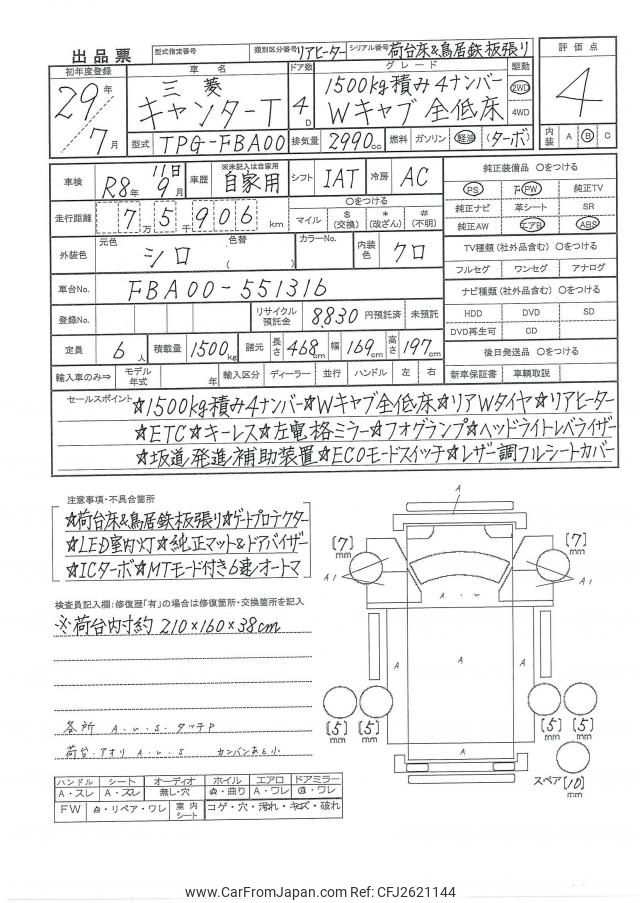 出品票 型式指定番号 類別区分番号 リアヒーター シリアル番号 荷台床&鳥居鉄板張り 評価点
初年度登録 車名 ドア数 グレード 駆動
29年 三菱 4D 1500kg積み4ナンバー 2WD 4
7月 キャンターT Wキャブ全低床 4WD
型式 TPG-FBA00 排気量 2990cc 燃料 ガソリン 軽油 (ターボ) 内装 A B C
車検 R8年 11日 9月 車歴 ※未記入は自家用 自家用 シフト IAT 冷房 AC
走行距離 7万5千906km マイル $(交換) *(改ざん) #(不明) 〇をつける
外装色 元色 シロ 色替 ( ) カラーNo. 内装色 クロ
車台No. FBA00-551316
登録No. リサイクル預託金 8,830 円預託済 未預託
定員 6人 積載量 1500kg 諸元 長さ 468cm 幅 169cm 高さ 197cm
輸入車のみ⇒ モデル年式 年 輸入区分 ディーラー 並行 ハンドル 左 右
純正装備品 〇をつける
PS PW 純正TV
純正ナビ 革シート SR
純正AW エアB ABS
TV種類(社外品含む) 〇をつける
フルセグ ワンセグ アナログ
ナビ種類(社外品含む) 〇をつける
HDD DVD SD
DVD再生可 CD
後日発送品 〇をつける
新車保証書 車輌取説
セールスポイント ☆1500kg積み4ナンバー☆Wキャブ全低床☆リアWタイヤ☆リアヒーター
☆ETC☆キーレス☆左電格ミラー☆フォグランプ☆ヘッドライトレベライザー
☆坂道発進補助装置☆ECOモードスイッチ☆レザー調フルシートカバー
注意事項・不具合箇所
☆荷台床&鳥居鉄板張り☆ゲートプロテクター
☆LED室内灯☆純正マット&ドアバイザー
☆ICターボ☆MTモード付き6速オートマ
検査員記入欄:修復歴「有」の場合は修復箇所・交換箇所を記入
※荷台内寸約 210×160×38cm
各所 A.U.S.タッチP
荷台.アオリ A.U.S カンバンあと小
ハンドル シート オーディオ ホイル エアロ ドアミラー
A・スレ A・スレ 無し・穴 曲り A・ワレ ワレ
FW リペア・ワレ 室内シート コゲ・穴・汚れ・キズ・破れ
[7]mm [7]mm
A1 A1
A.U
A A A
A
[5]mm [5]mm [5]mm [5]mm
スペア [10]mm
www.CarFromJapan.com Ref: CFJ2621144